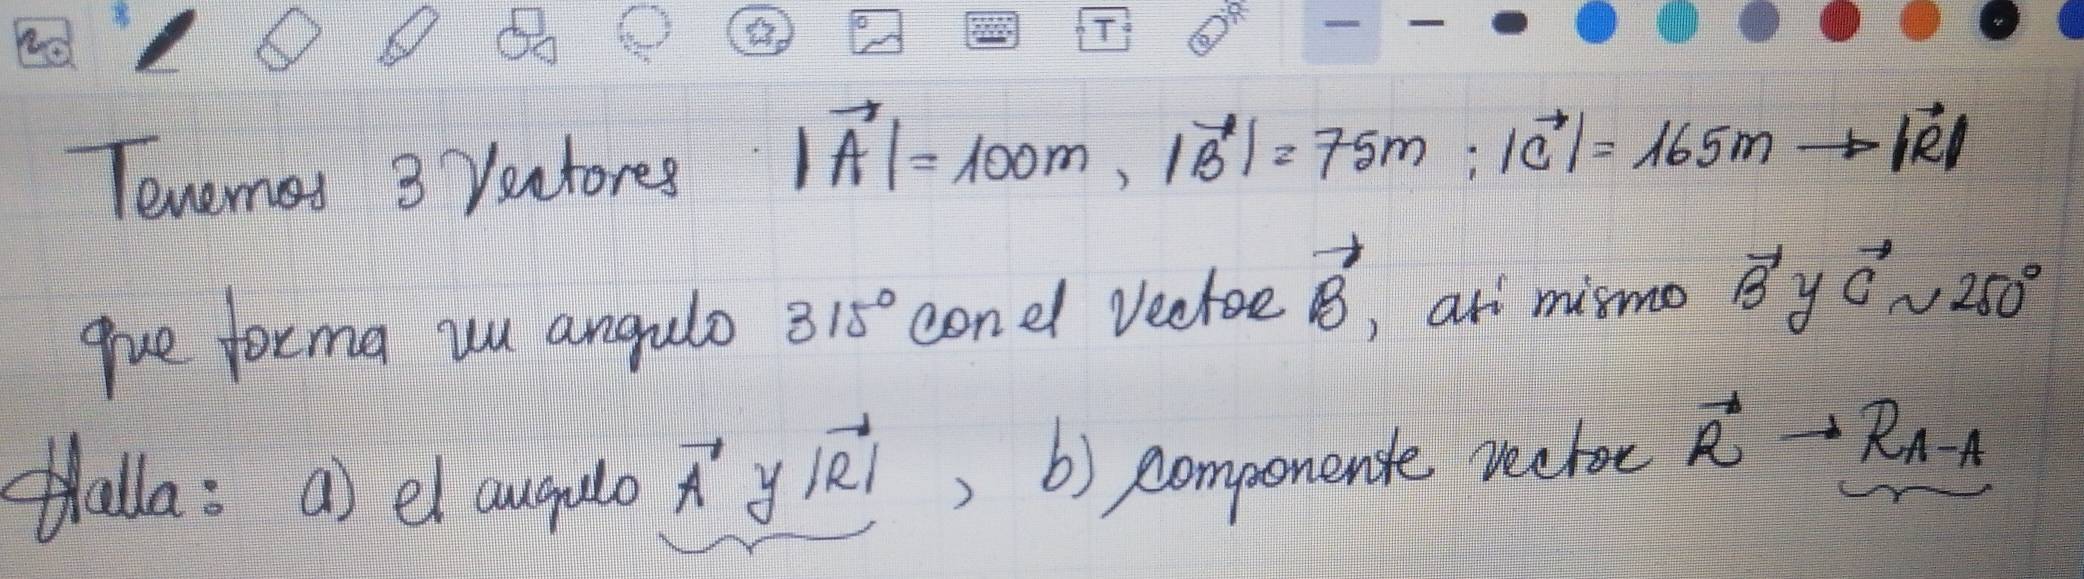 Tenemos 3 Vectores |A⃗| = 100m, |B⃗| = 75m ; |C⃗| = 165m → |R⃗|
que forma un angulo 315° con el Vector B⃗, asi mismo B⃗ y C⃗ ~ 250°
Halla: a) el angulo A⃗ y |R⃗| , b) componente vector R⃗ → R_A-A